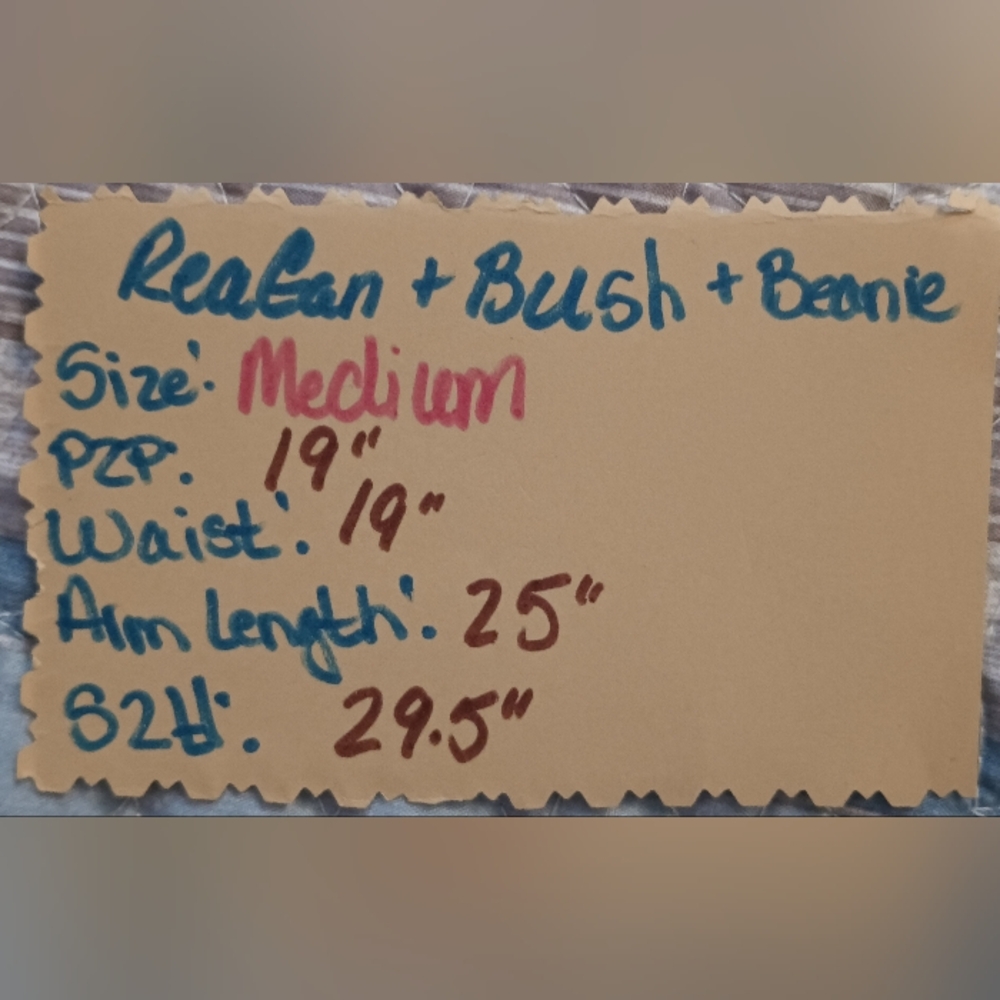 Reagan + Bush + Beanie
Size: Medium
P2P: 19"
Waist: 19"
Arm Length: 25"
S2H: 29.5"